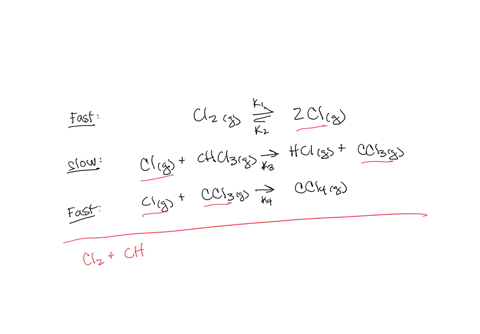 Fast: Cl2(g) K1 ⇌ K2 2Cl(g)
slow: Cl(g) + CHCl3(g) → K3 HCl(g) + CCl3(g)
Fast: Cl(g) + CCl3(g) → K4 CCl4(g)
Cl2 + CH